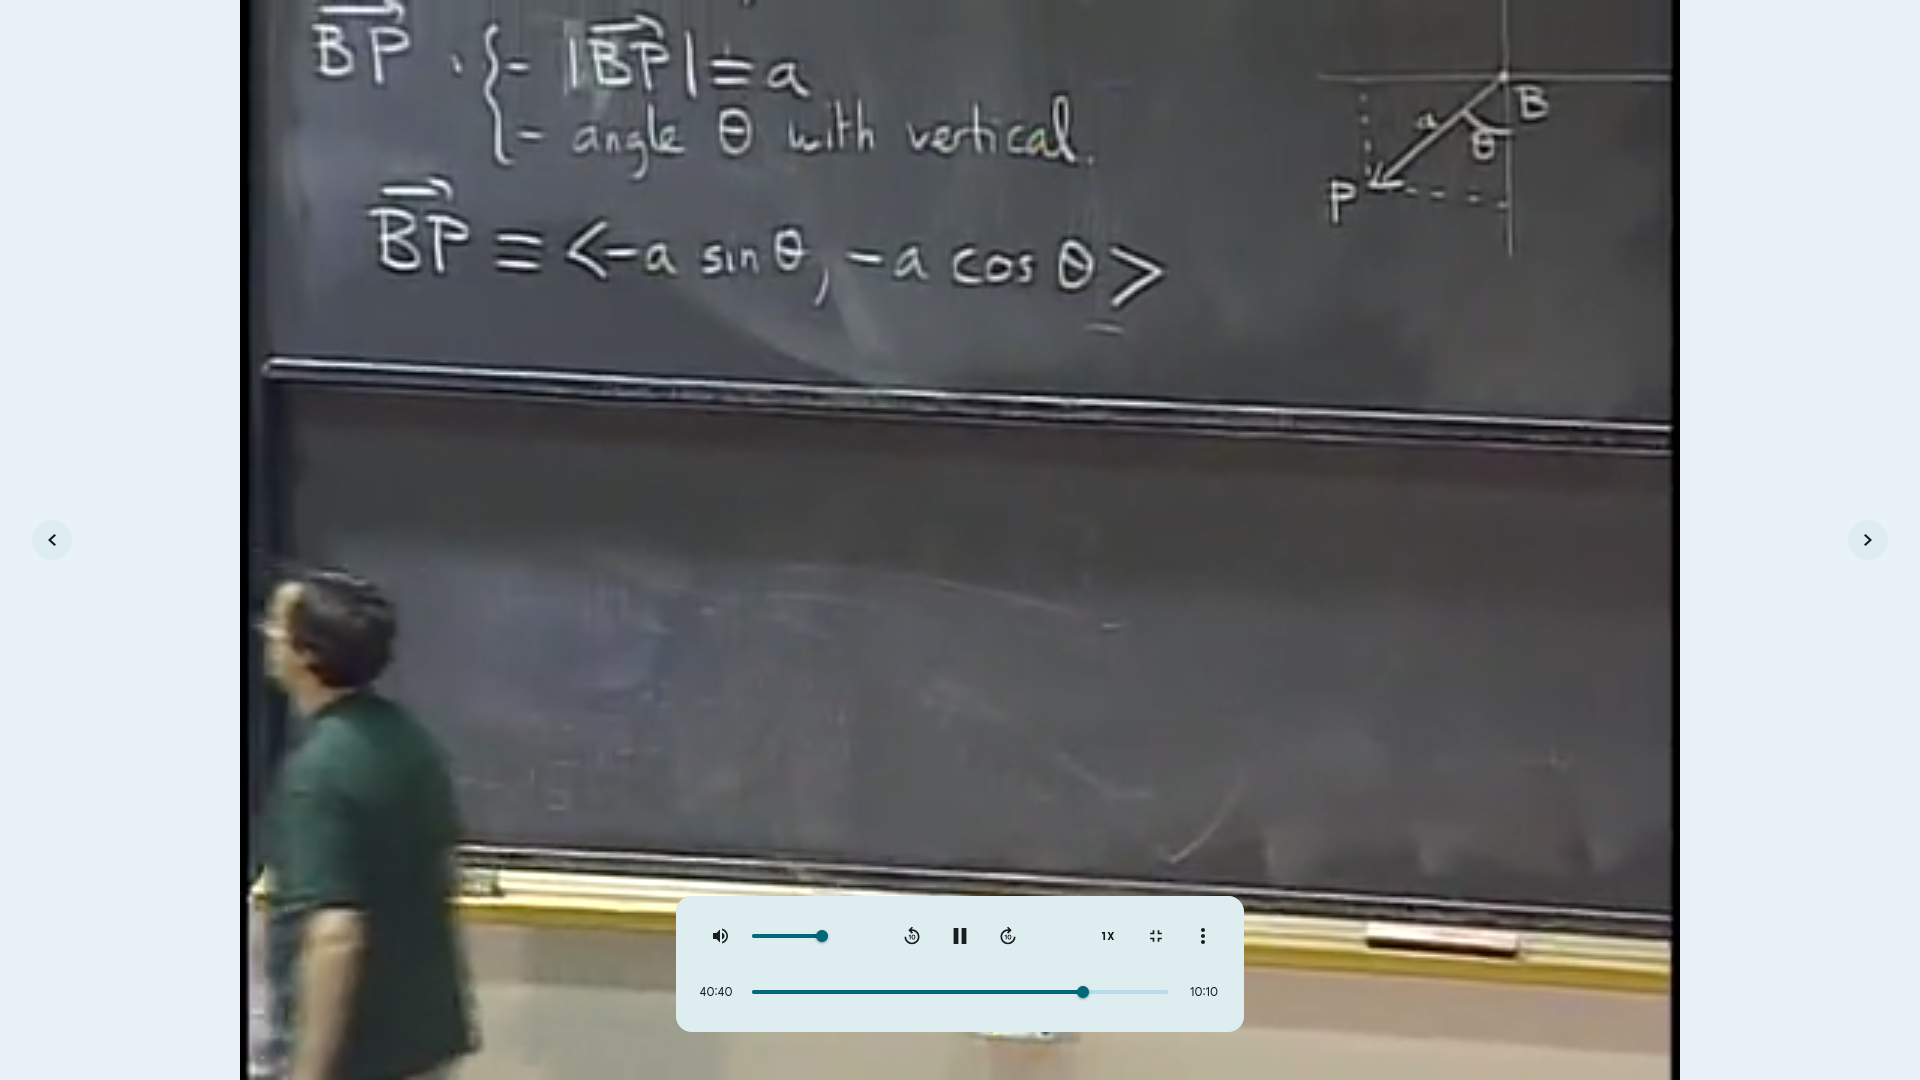 BP : { - |BP| = a
- angle θ with vertical.
BP = <-a sin θ, -a cos θ>
B
a
θ
P
10
10
1X
40:40
10:10